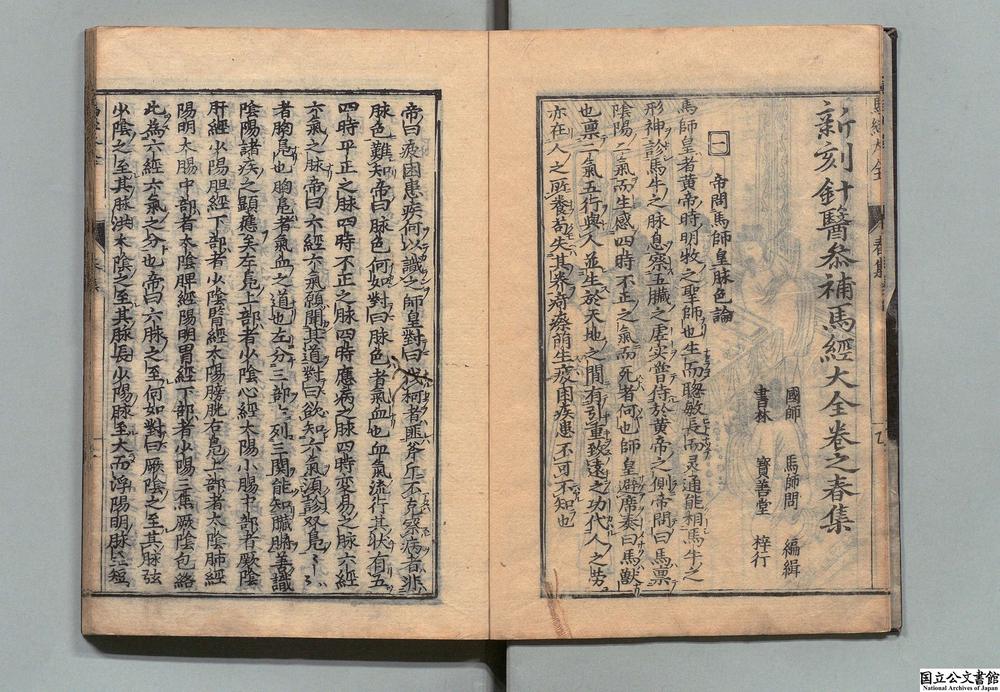 新刻針醫參補馬經大全卷之春集
國師 馬師問 編緝
書林 寳善堂 梓行
一 帝問馬師皇脉色論
馬師皇者黄帝時明牧之聖師也生而聦敏長而灵通能相馬牛之
形神診馬牛之脉息察五臓之虚实嘗侍於黄帝之側帝問曰馬禀
陰陽二氣而生感四時不正之氣而死者何也師皇避席奏曰馬獸
也禀二氣五行與人並生於天地之間有引重致遠之功代人之劳
亦在人之所養苟失其养瘠瘵萌生疲困疾患不可不知也
帝曰疲困患疾何以識之師皇對曰伐柯者匪斧斤不克察病者非
脉色難知帝曰脉色何如對曰脉色者氣血也血氣流行其狀有五
四時平正之脉四時不正之脉四時應病之脉四時变易之脉六經
六氣之脉帝曰六經六氣縁聞其道對曰欲知六氣須診双鳬〻〻
者胸鳬也胸鳬者氣血之道也左分三部〻列三関能知臓腑善識
陰陽諸疾之顕應矣左鳬上部者少陰心經太陽小腸中部者厥陰
肝經少陽胆經下部者少陰腎經太陽膀胱右鳬上部者太陰肺經
陽明大腸中部者太陰脾經陽明胃經下部者少陽三焦厥陰包絡
此為六經六氣之分也帝曰六脉之至何如對曰厥陰之至其脉弦
少陰之至其脉洪太陰之至其脉長少陽脉至大而浮陽明脉至短
国立公文書館
National Archives of Japan